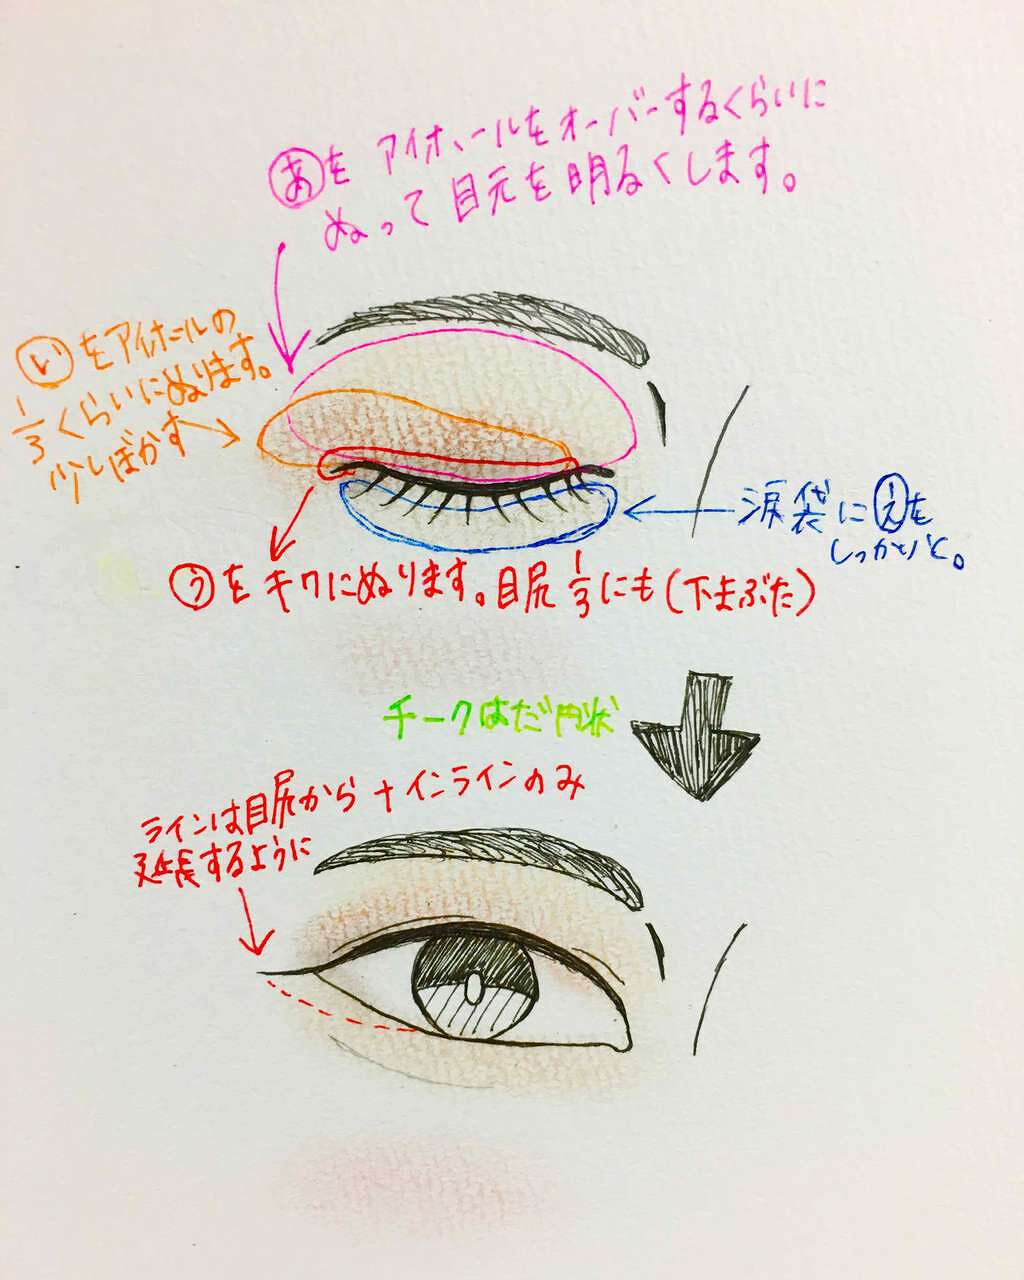 あをアイホールをオーバーするくらいに
ぬって目元を明るくします。
いをアイホールの
1/3くらいにぬります。
少しぼかす
涙袋にえを
しっかりと。
うをキワにぬります。目尻1/3にも(下まぶた)
チークはだ円状
ラインは目尻から+インラインのみ
延長するように